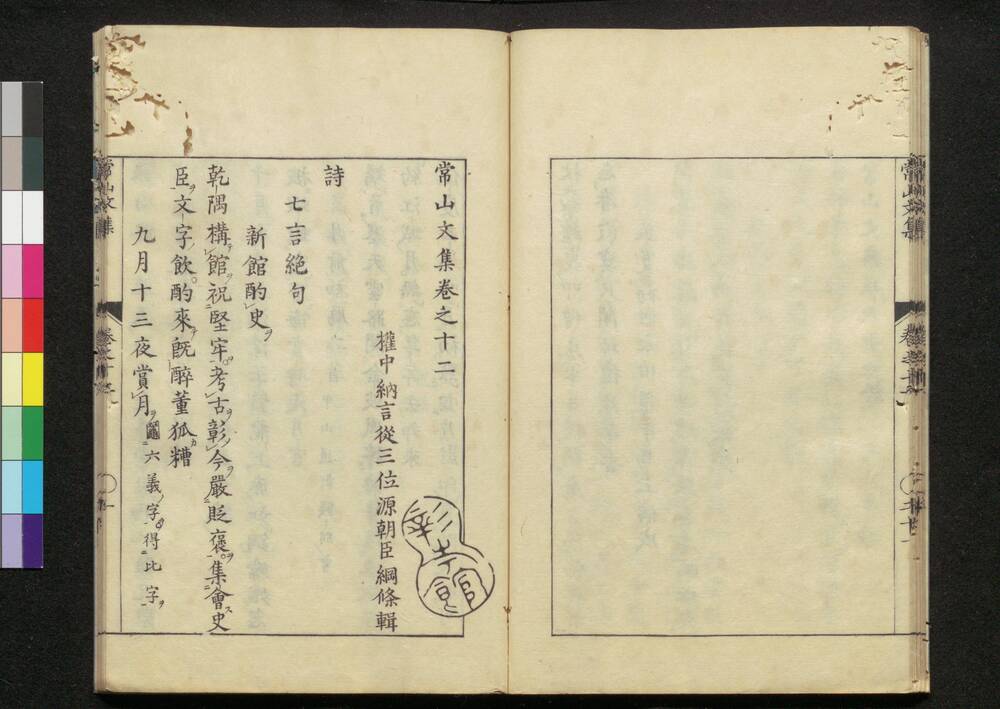 常山文集卷之十二
權中納言從三位源朝臣綱條輯
彰考館
詩
七言絕句
新館酌史
乾隅構館祝堅牢考古彰今嚴貶褒集會史
臣文字飲酌來既醉董狐糟
九月十三夜賞月 六義字得比字
常山文集
常山文集